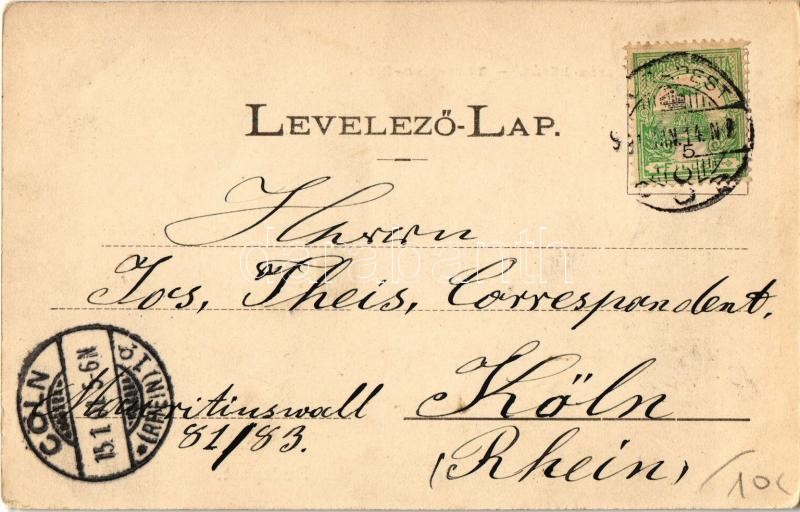 LEVELEZŐ-LAP.
BUDAPEST
Herrn
Jos, Theis, Correspondent,
Köln
Mauritiuswall
81/83.
(Rhein)
CÖLN
(RHEIN) 1
5-6N
darabanth
10c